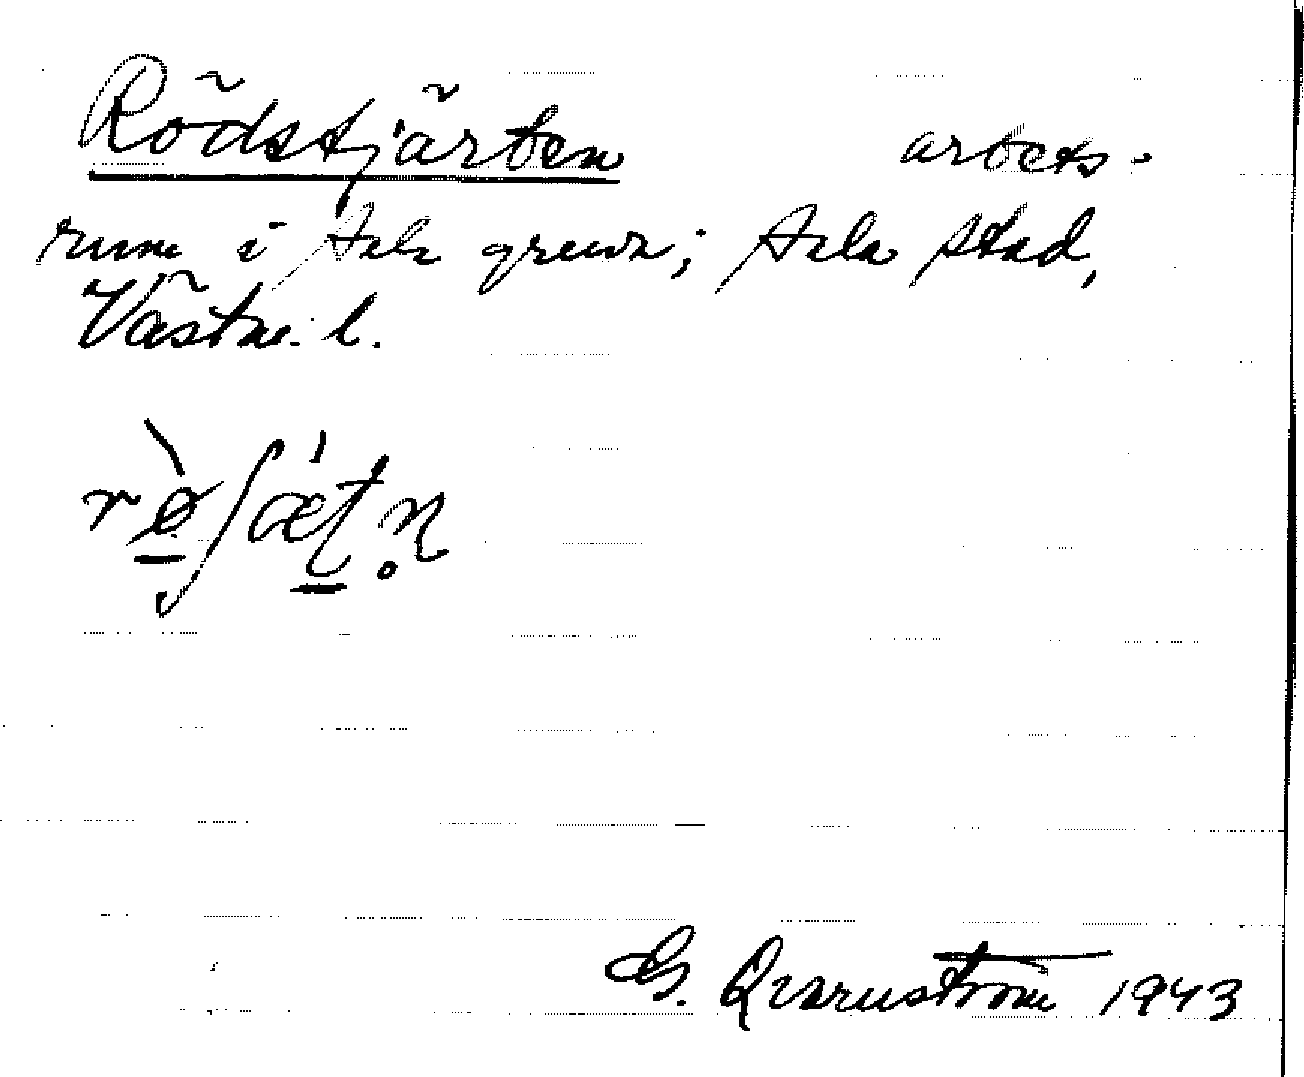 Rödstjärten arbets-
rum i Sala gruva; Sala stad,
Västm. l.
G. Qvarnström 1943